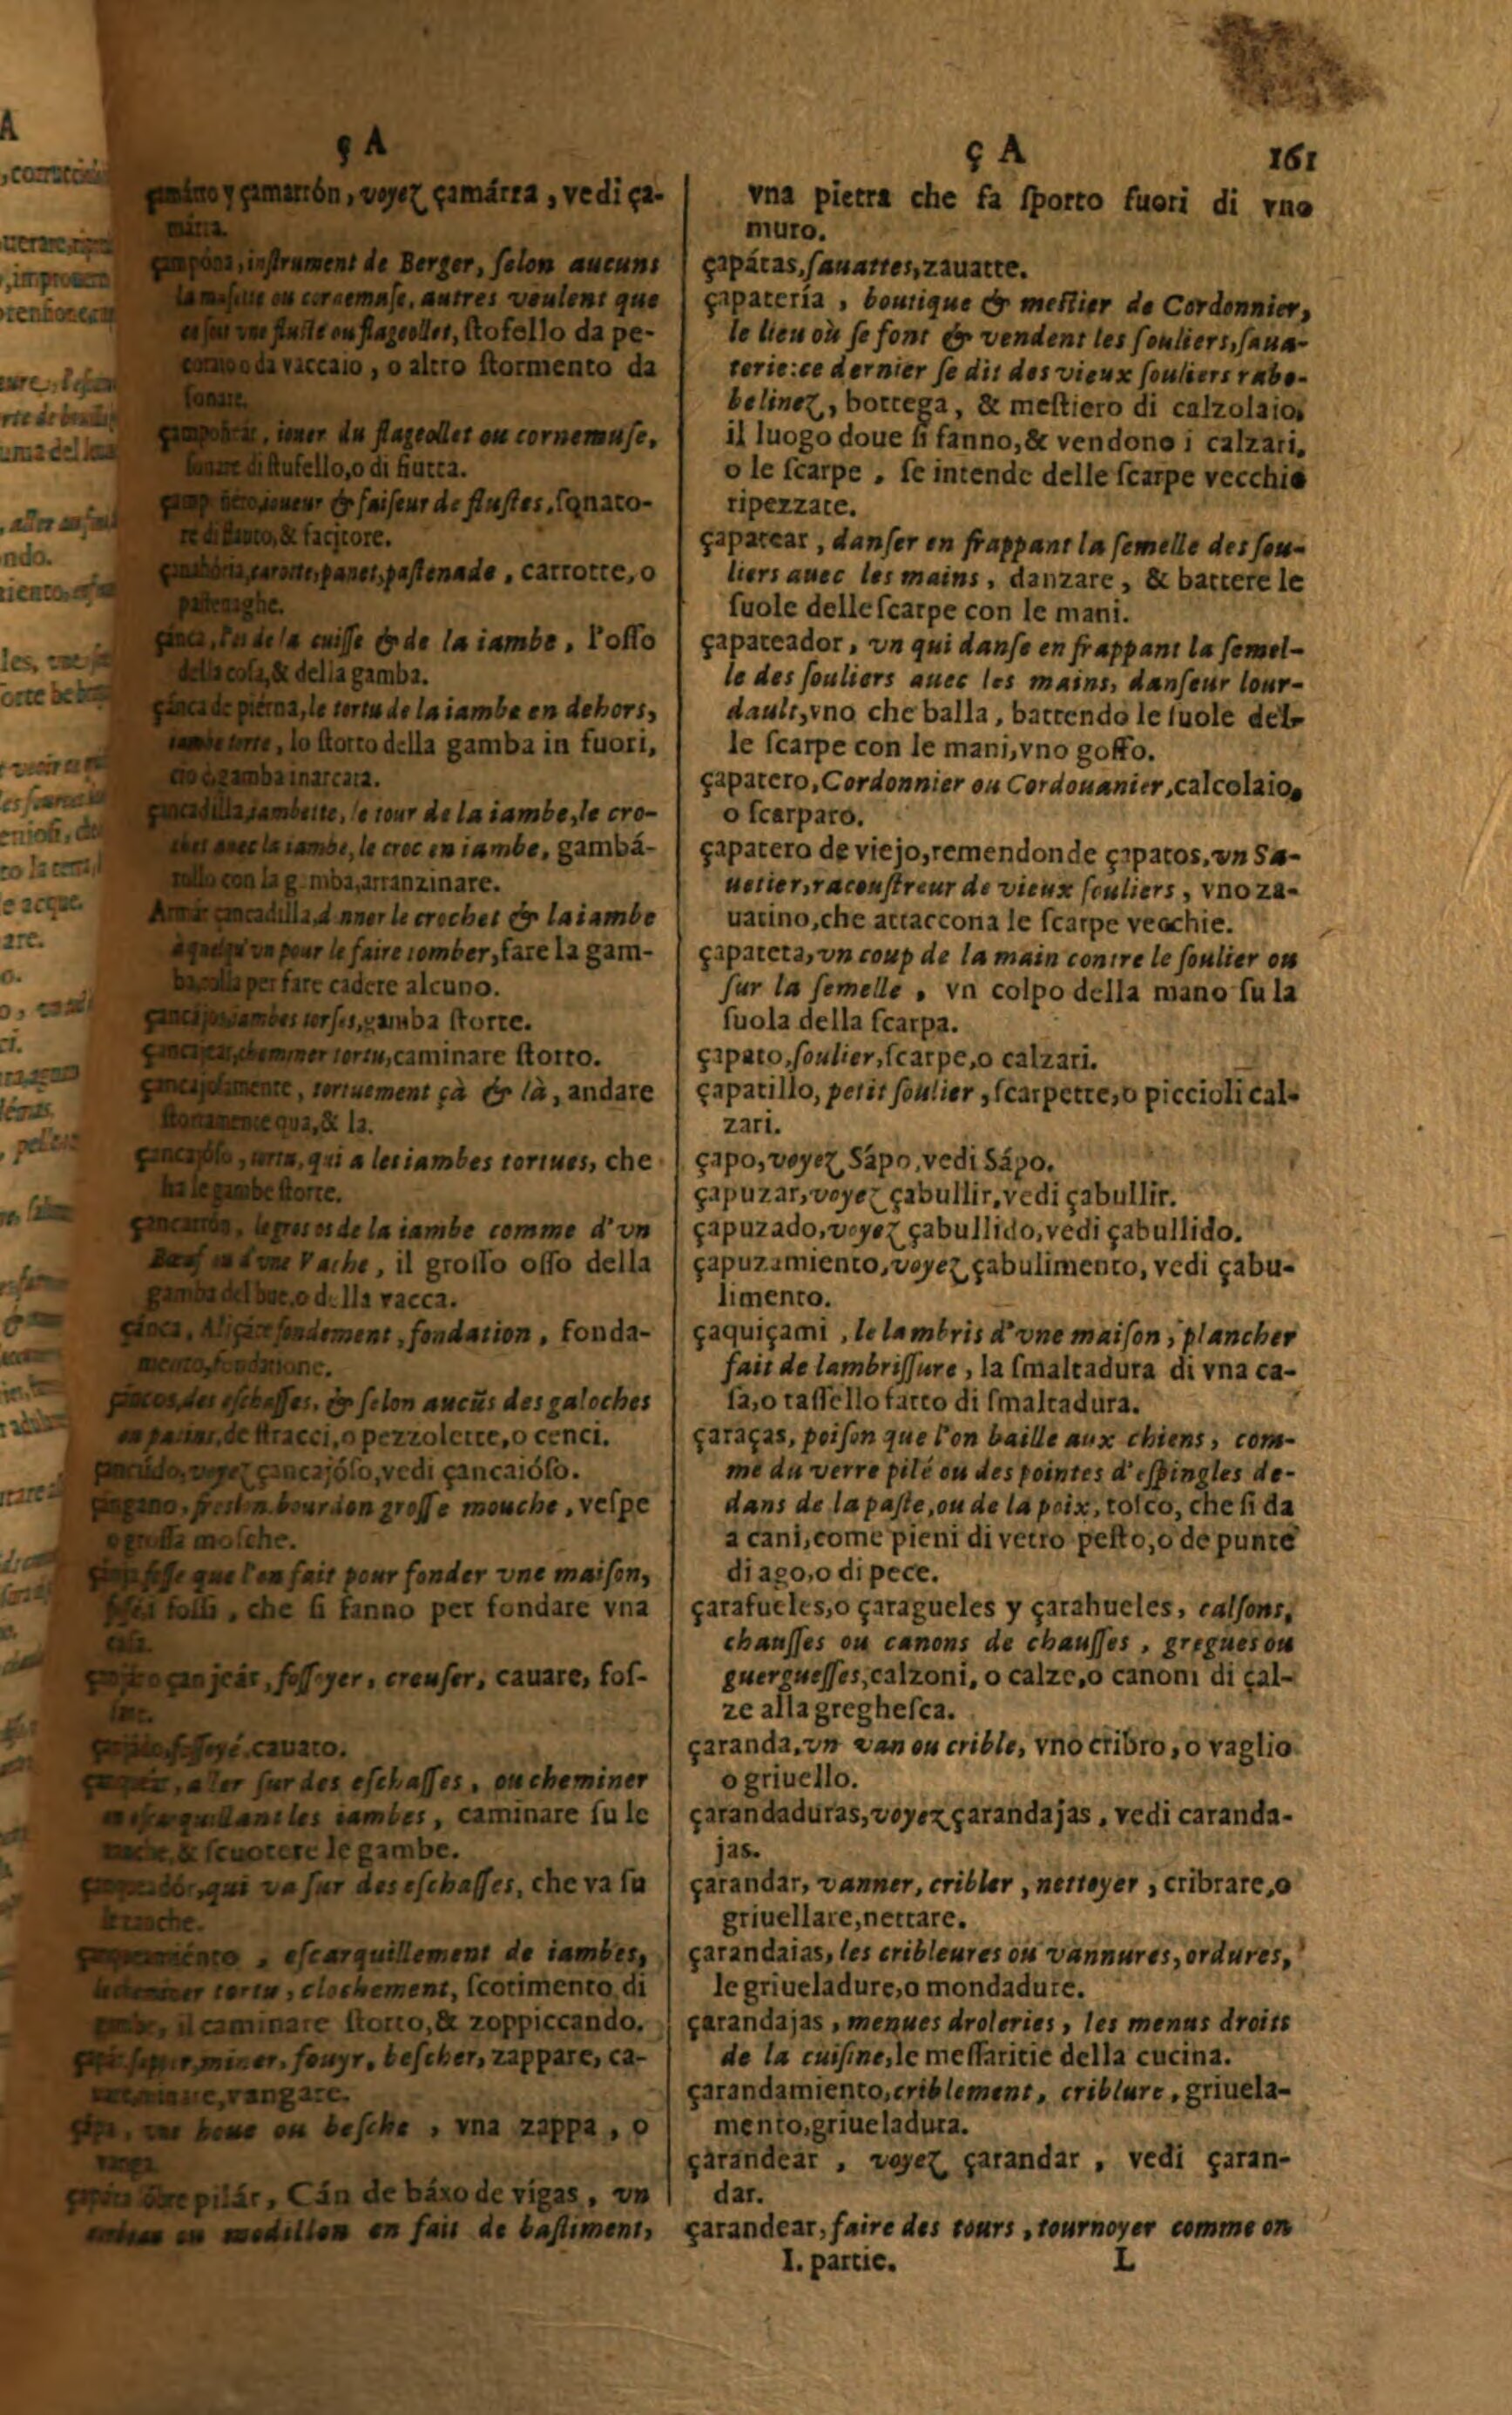 ç A
çamárro y çamarrón, voyez çamárra, vedi ça-
márra.
çampóna, instrument de Berger, ſelon aucuns
la muſette ou cornemuſe, autres veulent que
ce ſoit vne fluſte ou flageollet, ſtofello da pe-
coraio o da vaccaio, o altro ſtormento da
ſonare.
iouer du flageollet ou cornemuſe,
ſonare di ſtufello, o di fiutta.
ioueur & faiſeur de fluſtes, ſonato-
re di flauto, & facitore.
çanahória, carotte, panet, paſtenade, carrotte, o
paſtenaghe.
çánca, l'os de la cuiſſe & de la iambe, l'oſſo
della coſa, & della gamba.
çánca de piérna, le tortu de la iambe en dehors,
iambe torte, lo ſtorto della gamba in fuori,
cio è gamba inarcata.
çancadilla, iambette, le tour de la iambe, le cro-
chet auec la iambe, le croc en iambe, gambá-
rollo con la gamba, arranzinare.
Armár çancadilla, donner le crochet & la iambe
à quelqu'vn pour le faire tomber, fare la gam-
per fare cadere alcuno.
iambes torſes, gamba ſtorte.
cheminer tortu, caminare ſtorto.
çancajoſamente, tortuement çà & là, andare
ſtortamente qua, & la.
çancajóſo, tortu, qui a les iambes tortues, che
ha le gambe ſtorte.
çancarrón, le gros os de la iambe comme d'vn
Bœuf ou d'vne Vache, il groſſo oſſo della
gamba del bue, o della vacca.
fondement, fondation, fonda-
mento, fondatione.
çancos, des eſchaſſes, & ſelon aucũs des galoches
ou patins, de ſtracci, o pezzolette, o cenci.
voyez çancajóſo, vedi çancaióſo.
çángano, freslon, bourdon groſſe mouche, veſpe
o groſſa moſche.
foſſe que l'on fait pour fonder vne maiſon,
foſſi, che ſi fanno per fondare vna
caſa.
foſſoyer, creuſer, cauare, foſ-
foſſoyé, cauato.
aller ſur des eſchaſſes, ou cheminer
en eſcarquillant les iambes, caminare ſu le
& ſcuotere le gambe.
qui va ſur des eſchaſſes, che va ſu
eſcarquillement de iambes,
le cheminer tortu, clochement, ſcotimento di
gambe, il caminare ſtorto, & zoppiccando.
miner, fouyr, beſcher, zappare, ca-
vangare.
vne houe ou beſche, vna zappa, o
vanga.
ſobre pilár, Cán de báxo de vigas, vn
ou modillon en fait de baſtiment,
ç A 161
vna pietra che fa ſporto fuori di vno
muro.
çapátas, ſauattes, zauatte.
çapatería, boutique & meſtier de Cordonnier,
le lieu où ſe font & vendent les ſouliers, ſaua-
terie: ce dernier ſe dit des vieux ſouliers rabo-
belinez, bottega, & meſtiero di calzolaio,
il luogo doue ſi fanno, & vendono i calzari,
o le ſcarpe, ſe intende delle ſcarpe vecchie
ripezzate.
çapatear, danſer en frappant la ſemelle des ſou-
liers auec les mains, danzare, & battere le
ſuole delle ſcarpe con le mani.
çapateador, vn qui danſe en frappant la ſemel-
le des ſouliers auec les mains, danſeur lour-
dault, vno che balla, battendo le ſuole del-
le ſcarpe con le mani, vno goffo.
çapatero, Cordonnier ou Cordouanier, calcolaio,
o ſcarparo.
çapatero de viejo, remendon de çapatos, vn Sa-
uetier, racouſtreur de vieux ſouliers, vno za-
uatino, che attaccona le ſcarpe vecchie.
çapateta, vn coup de la main contre le ſoulier ou
ſur la ſemelle, vn colpo della mano ſu la
ſuola della ſcarpa.
çapato, ſoulier, ſcarpe, o calzari.
çapatillo, petit ſoulier, ſcarpette, o piccioli cal-
zari.
çapo, voyez Sápo, vedi Sápo.
çapuzar, voyez çabullir, vedi çabullir.
çapuzado, voyez çabullido, vedi çabullido.
çapuzamiento, voyez çabulimento, vedi çabu-
limento.
çaquiçami, le lambris d'vne maiſon, plancher
fait de lambriſſure, la ſmaltadura di vna ca-
ſa, o taſſello fatto di ſmaltadura.
çaraças, poiſon que l'on baille aux chiens, com-
me du verre pilé ou des pointes d'eſpingles de-
dans de la paſte, ou de la poix, toſco, che ſi da
a cani, come pieni di vetro peſto, o de punte
di ago, o di pece.
çarafueles, o çaragueles y çarahueles, calſons,
chauſſes ou canons de chauſſes, gregues ou
guergueſſes, calzoni, o calze, o canoni di çal-
ze alla gregheſca.
çaranda, vn van ou crible, vno cribro, o vaglio
o griuello.
çarandaduras, voyez çarandajas, vedi caranda-
jas.
çarandar, vanner, cribler, nettoyer, cribrare, o
griuellare, nettare.
çarandaias, les cribleures ou vannures, ordures,
le griueladure, o mondadure.
çarandajas, menues droleries, les menus droits
de la cuiſine, le meſſaritie della cucina.
çarandamiento, criblement, criblure, griuela-
mento, griueladura.
çarandear, voyez çarandar, vedi çaran-
dar.
çarandear, faire des tours, tournoyer comme on
I. partie. L